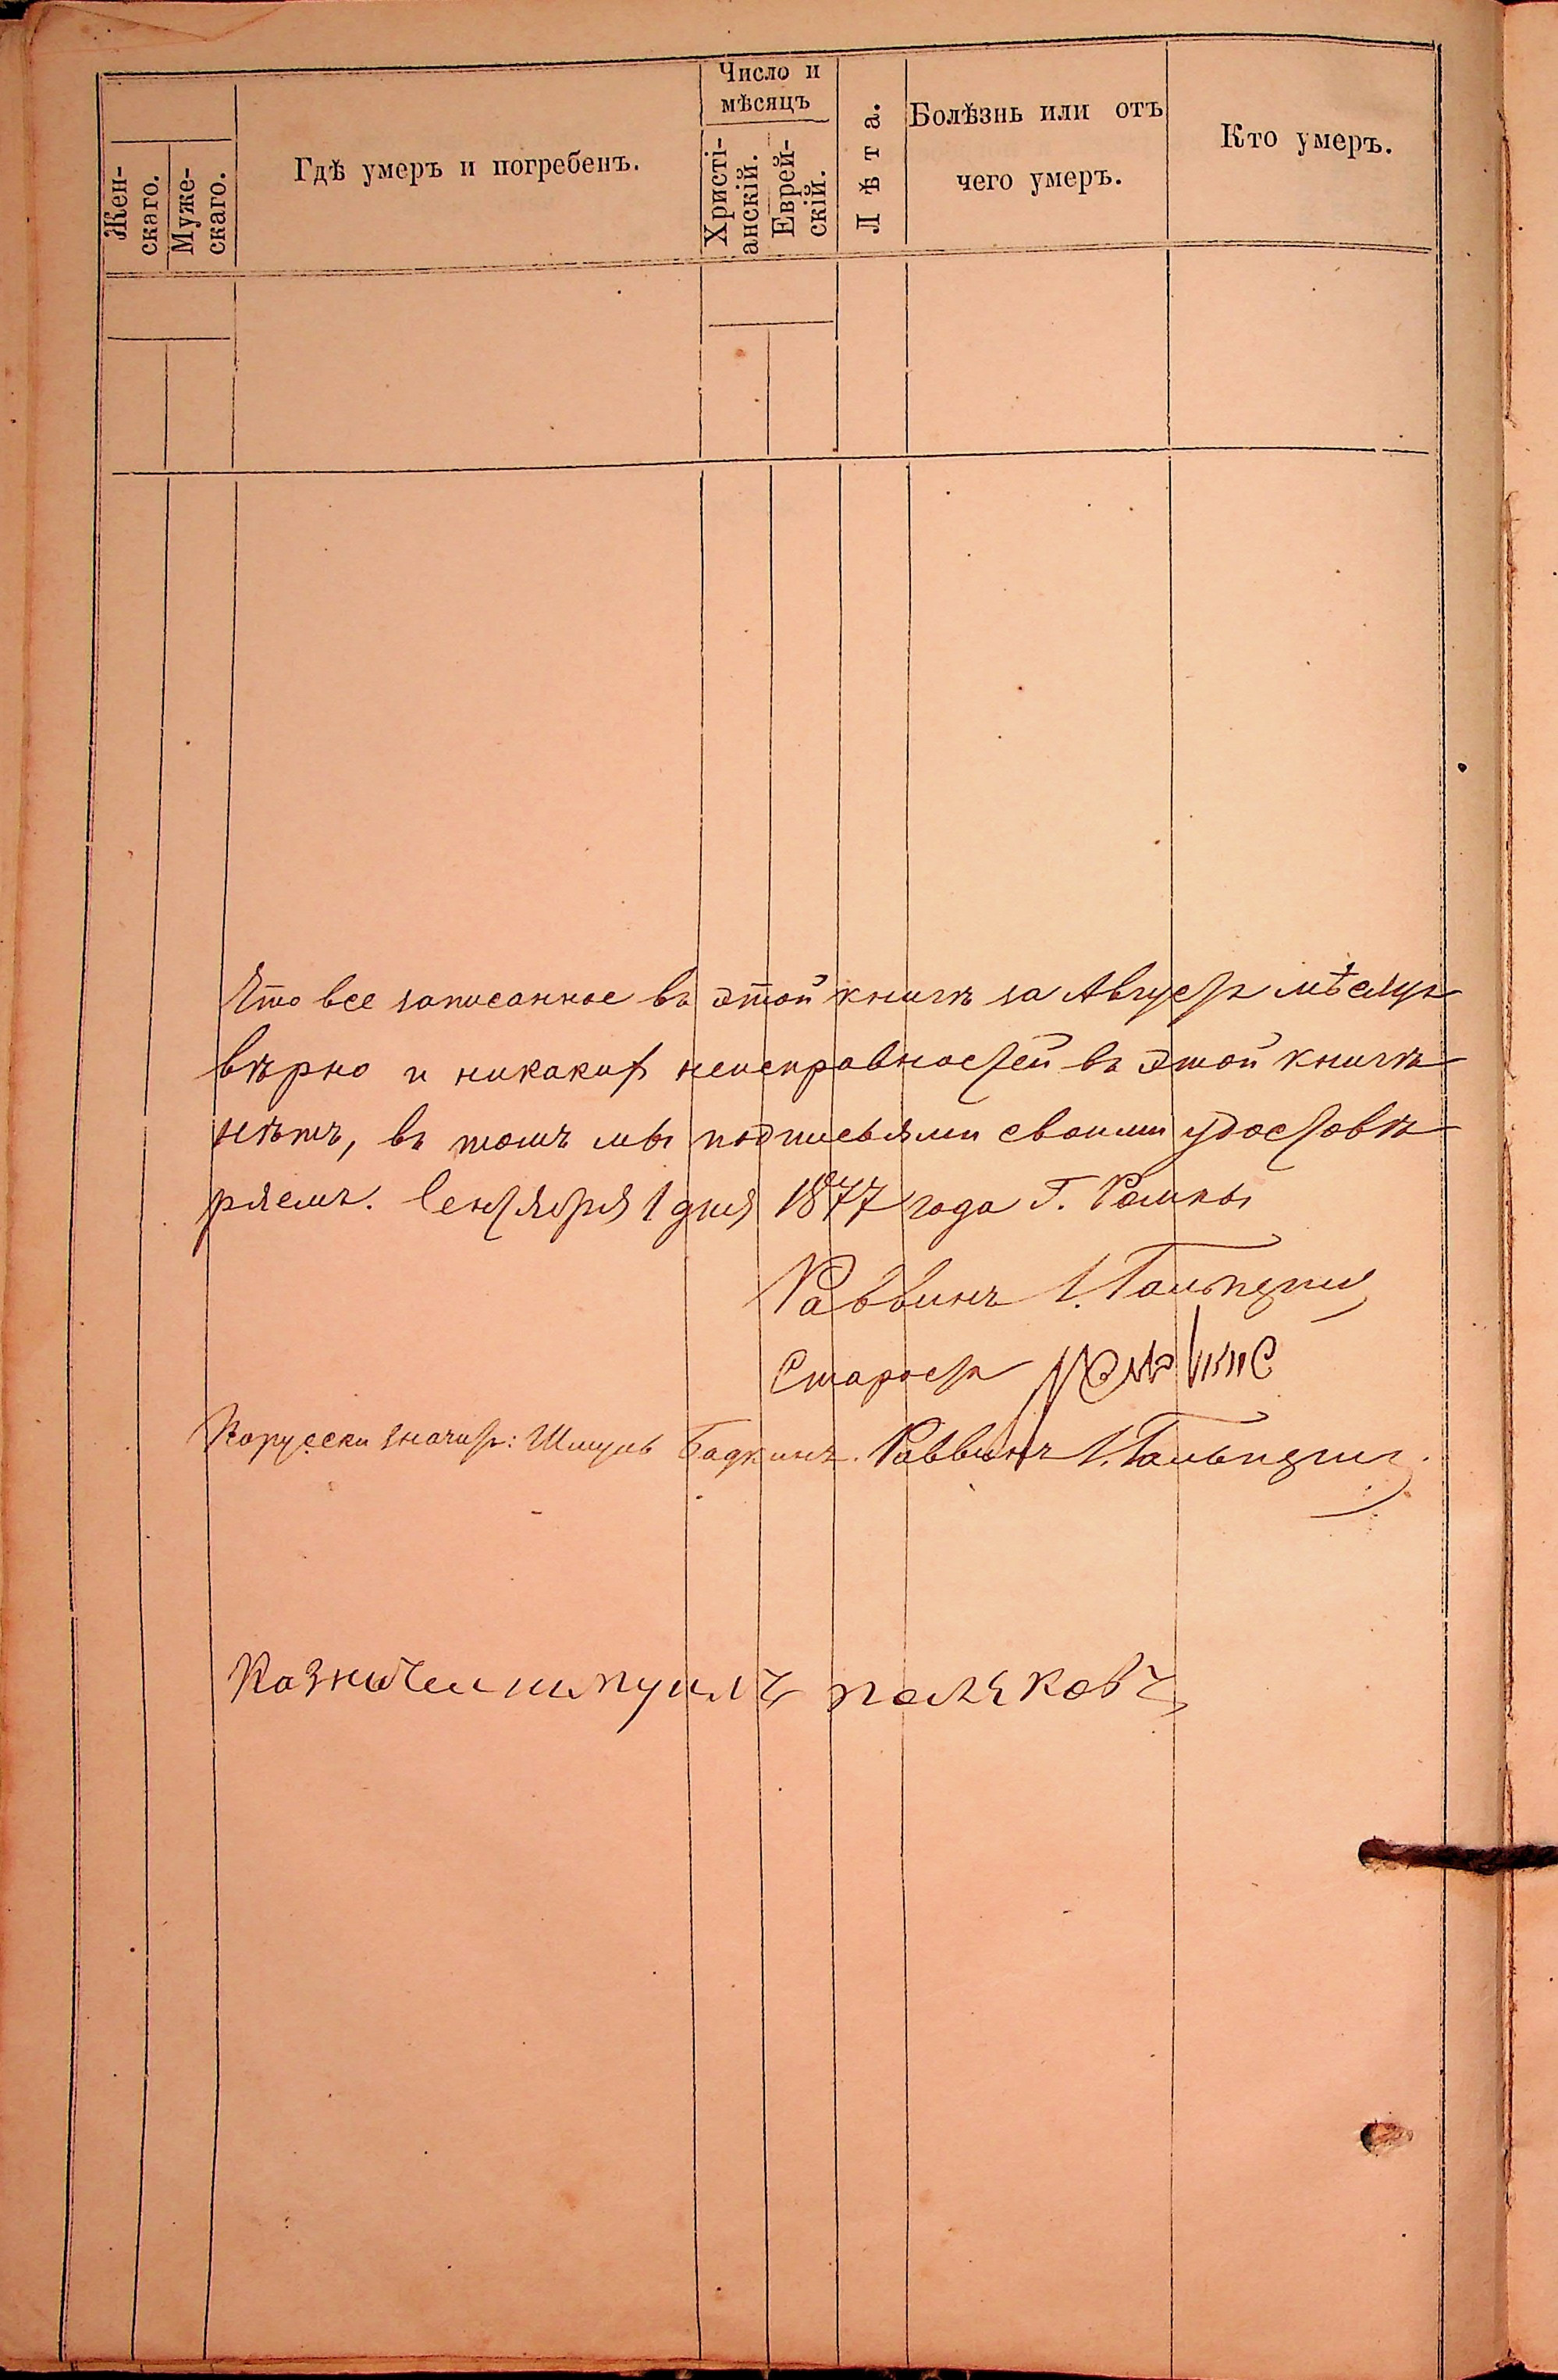 Число и
мѣсяцъ
Жен-
скаго.
Муже-
скаго.
Гдѣ умеръ и погребенъ.
Христі-
анскій.
Еврей-
скій.
Лѣта.
Болѣзнь или отъ
чего умеръ.
Кто умеръ.
Что все записанное въ этой книгѣ за Августъ мѣсяцъ
вѣрно и никакихъ неисправностей въ этой книгѣ
нѣтъ, въ томъ мы подписьями своими удостовѣ
ряемъ. Сентября 1 дня 1877 года Г. Ромны
Раввинъ И. Гальперин
Староста
Порусски значитъ: Шмуль Бадкинъ. Раввинъ И. Гальперин
Казначеи шмуилъ поляковъ